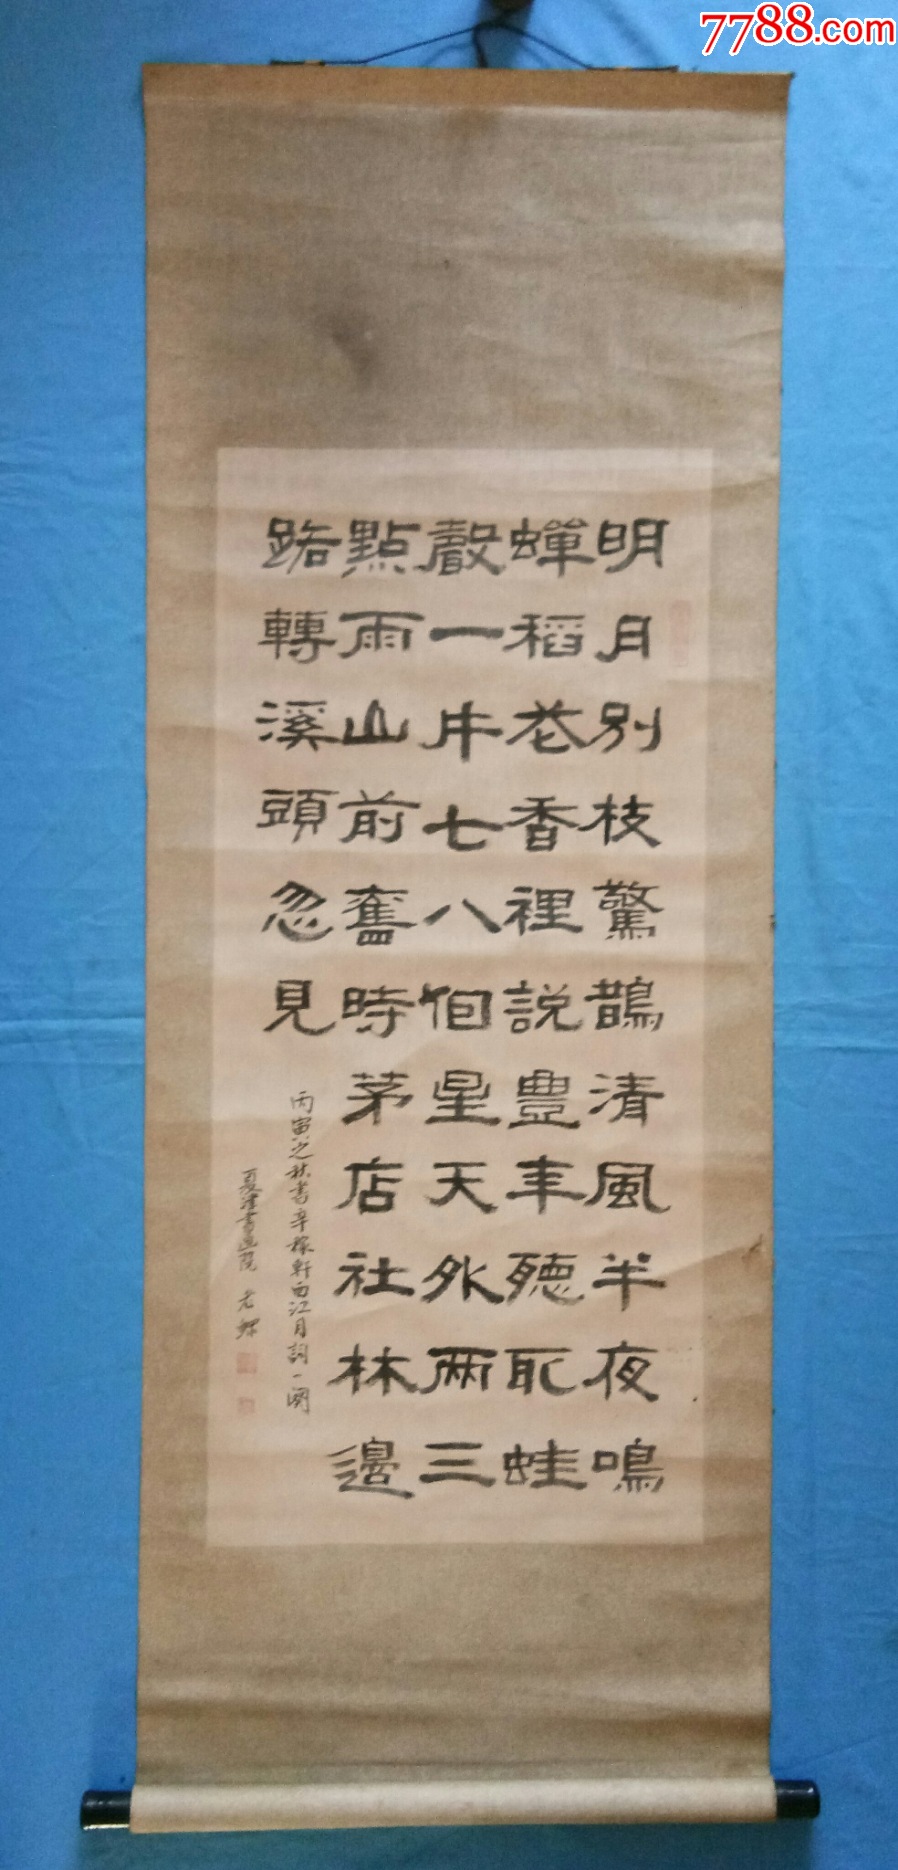 7788.com
明月別枝驚鵲清風半夜鳴
蟬稻花香裡説豐年聽取蛙
聲一片七八個星天外兩三
點雨山前舊時茅店社林邊
路轉溪頭忽見
丙寅之秋書辛稼軒西江月詞一闋
夏津書画院 老